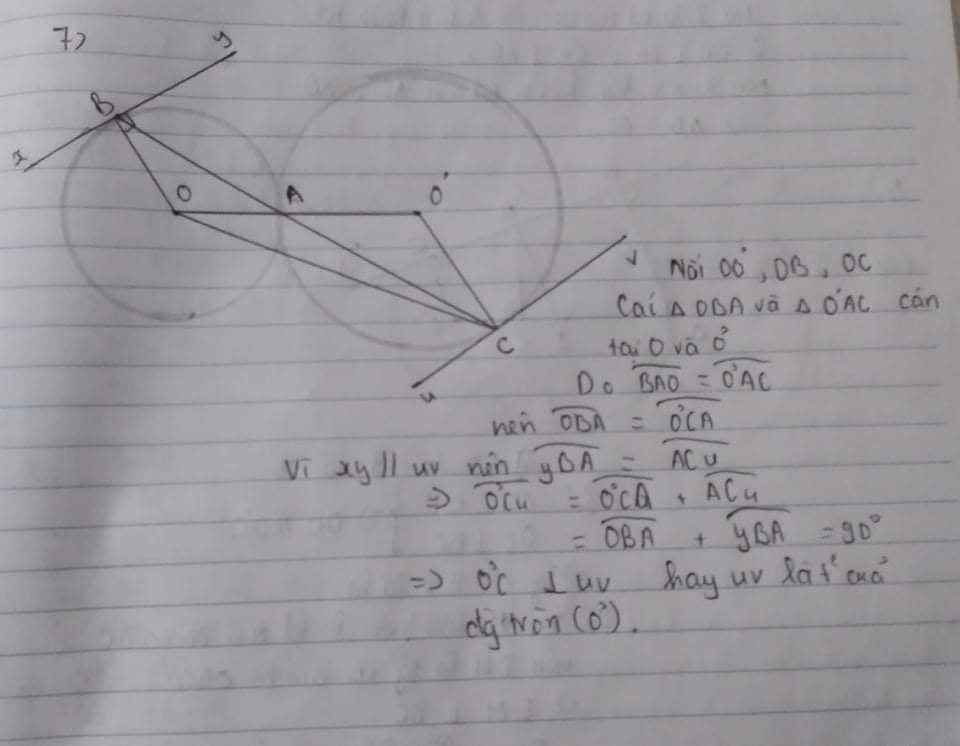 7)
y
B
x
O
A
O'
v
C
u
Nối OO', OB, OC
Cái △ OBA và △ O'AC cân
tại O và O'
Do BAO = O'AC
nên OBA = O'CA
Vì xy // uv nên yBA = ACu
=> O'Cu = O'CA + ACu
= OBA + yBA = 90°
=> O'C ⊥ uv hay uv là t² của
đg tròn (O').